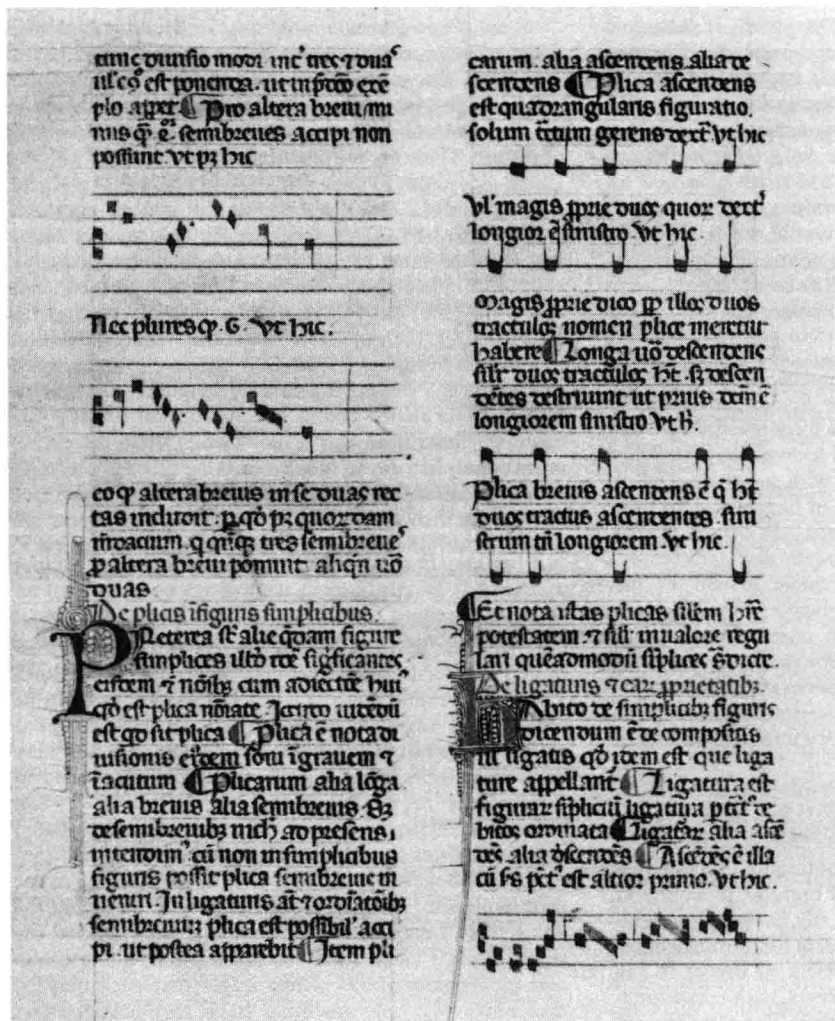 tunc diuisio modi int̾ tres ⁊ duas
ul̾ eo᷒ est ponenda. ut in p̃dc̃o exē
plo app̃et ¶ Pro altera breui mi
nus q̃ semibreues accipi non
possunt vt pꝫ hic
Nec plures qͣ .6. vt hic.
eo qͥ altera breuis in se duas rec
tas includit. p̱ qd̾ pꝫ quorꝺam
mēdacium. q̃ q̃nqꝫ tres semibreues
ꝓ altera breui ponunt aliqñ uō
duas
De plicis ī figuris simplicibus.
Preterea st̃ alie q̃dam figure
simplices
eisdem ⁊ nōībꝫ cum adiectōe hui᷒
qd̾ est plica nōīate. Jccirco uidēdū
est qd̾ sit plica ¶ Plica ē nota di
uisionis eiꝰdem soni ī grauem ⁊
ī acutum ¶ Plicarum alia lōga
alia breuis alia semibreuis. Sꝫ
de semibreuibꝫ nich̾ ad presens
intendim᷒ cū non in simplicibus
figuris possit plica semibreuis in
ueniri. Jn ligaturis āt ⁊ ordīatōībꝫ
semibreuiū plica est possibil᷒ acci
pi. ut postea apparebit ¶ Jtem pli
carum. alia ascendens alia de
scendens ¶ Plica ascendens
est quadrangularis figuratio.
solum tc̄tum gerens dext᷒ vt hic
Vl̾ magis ꝓprie duos quoꝝ dext᷒
longior ē sinistro. vt hic.
Magis ꝓprie dico ꝓp̱ illos duos
tractulos nomen plice meretur
habere ¶ Longa uō descendens
silr̃ duos tractulos hēt. sꝫ descen
dētes
longiorem sinistro vt h̄.
Plica breuis ascendens ē q̃ hēt
duos tractus ascendentes. sini
strum tn̄ longiorem. vt hic.
Et nota istas plicas silēm hr̄e
potestatem ⁊ sil̾ in ualore regu
lari quēadmodū sīplices
De ligaturis ⁊ earꝝ ꝓprietatibꝫ.
Habito de simplicibꝫ figuris
dicendum ē de compositis
siue ligatis qd̾ idem est que liga
ture appellant᷒ ¶ Ligatura est
figuraꝝ sīpliciū ligatiua p̱ tc̄t᷒ de
bitos ordinata ¶ Ligaturaꝝ alia ascē
dēs alia descendēs ¶ Ascēdēs ē illa
cū